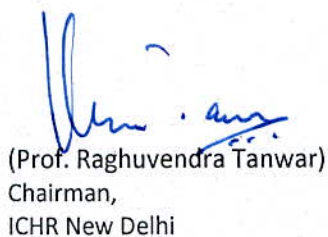 (Prof. Raghuvendra Tanwar)
Chairman,
ICHR New Delhi